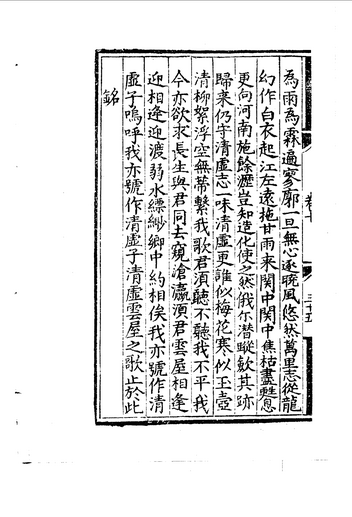 為雨為霖遍寥廓一旦無心逐曉風悠然萬里志從龍
幻作白衣起江左遠拖甘雨来関中関中焦枯盡甦息
更向河南施餘瀝豈知造化使之然我尓潜蹤歛其跡
歸来仍守清虚志一味清虚更誰似梅花寒似玉壺
清柳絮浮空無蔕繫我歌君須聽不聽我不平我
今亦欲求長生與君同去窺滄瀛演君雲屋相逢
迎相逢迎渡弱水縹緲鄉中約相俟我亦號作清
虚子嗚呼我亦號作清虚子清虚雲屋之歌止於此
銘
卷十
三十五